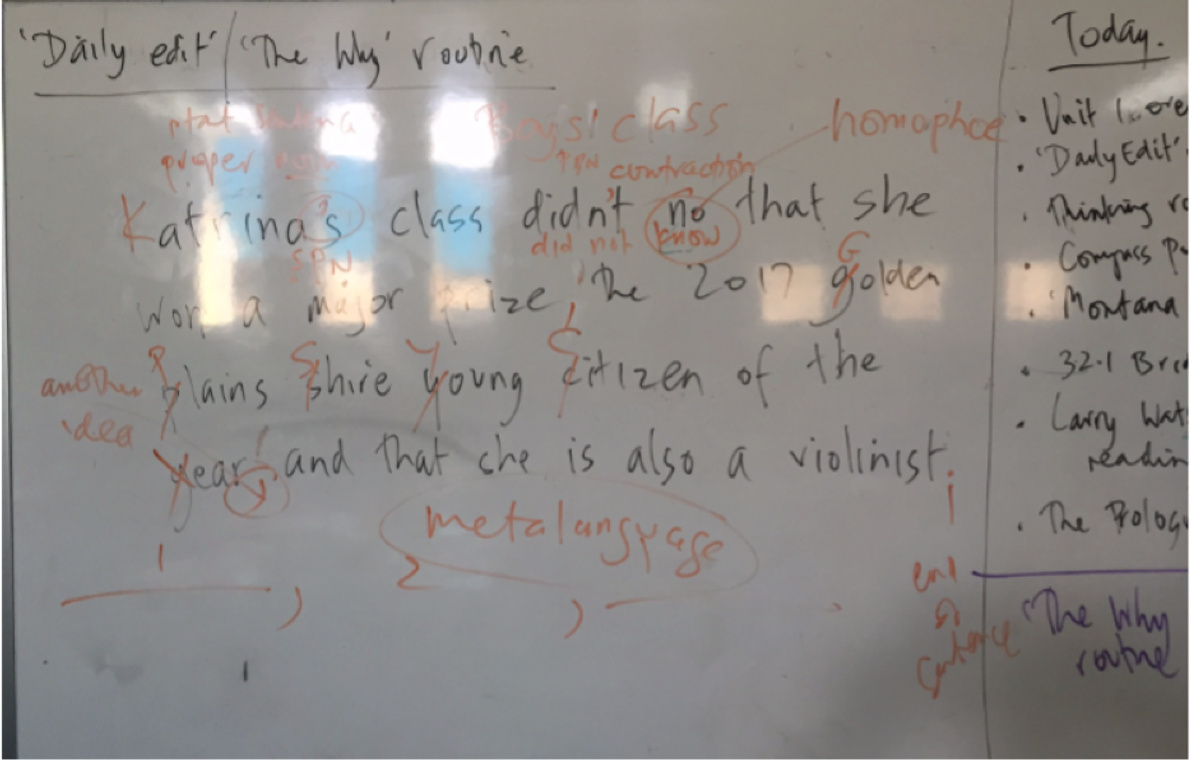 'Daily edit' / 'The Why' routine
start sentence
proper noun
Boys' class
homophce
↑ PN contraction
Katrina's class didn't no that she
SPN
did not
know
won a major prize, the 2017 golden
G
P S Y C
another
idea
plains shire young citizen of the
year, and that che is also a violinist.
metalanguage
1
2
end
of
sentence
Today.
• Unit 1
• 'Daily Edit'
• Thinking
• Compass
• 'Montana
• 32.1
• Larry Wat
readin
• The Prolog
'The Why
routine